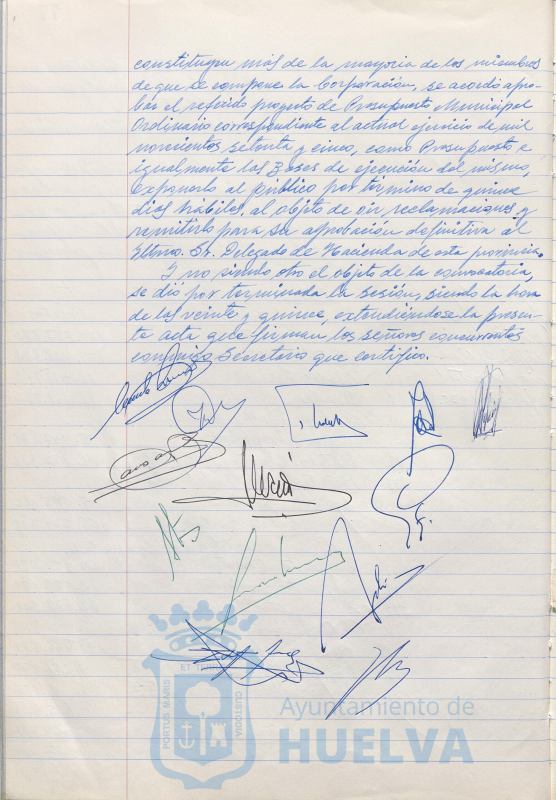 constituyen más de la mayoria de los miembros
de que se compone la Corporación, se acordó apro-
bar el referido proyecto de Presupuesto Municipal
Ordinario correspondiente al actual ejercicio de mil
novecientos setenta y cinco, como Presupuesto e
igualmente las Bases de ejecución del mismo,
Exponerlo al público por término de quince
dias hábiles, al objeto de oir reclamaciones y
remitirlo para su aprobación definitiva al
Iltmo. Sr. Delegado de Hacienda de esta provincia.
Y no siendo otro el objeto de la convocatoria,
se dió por terminada la sesión, siendo la hora
de las veinte y quince, extendiéndose la presen-
te acta que firman los señores concurrentes
conmigo Secretario que certifico.
PORTUS MARIS
CUSTODIA
Ayuntamiento de
HUELVA